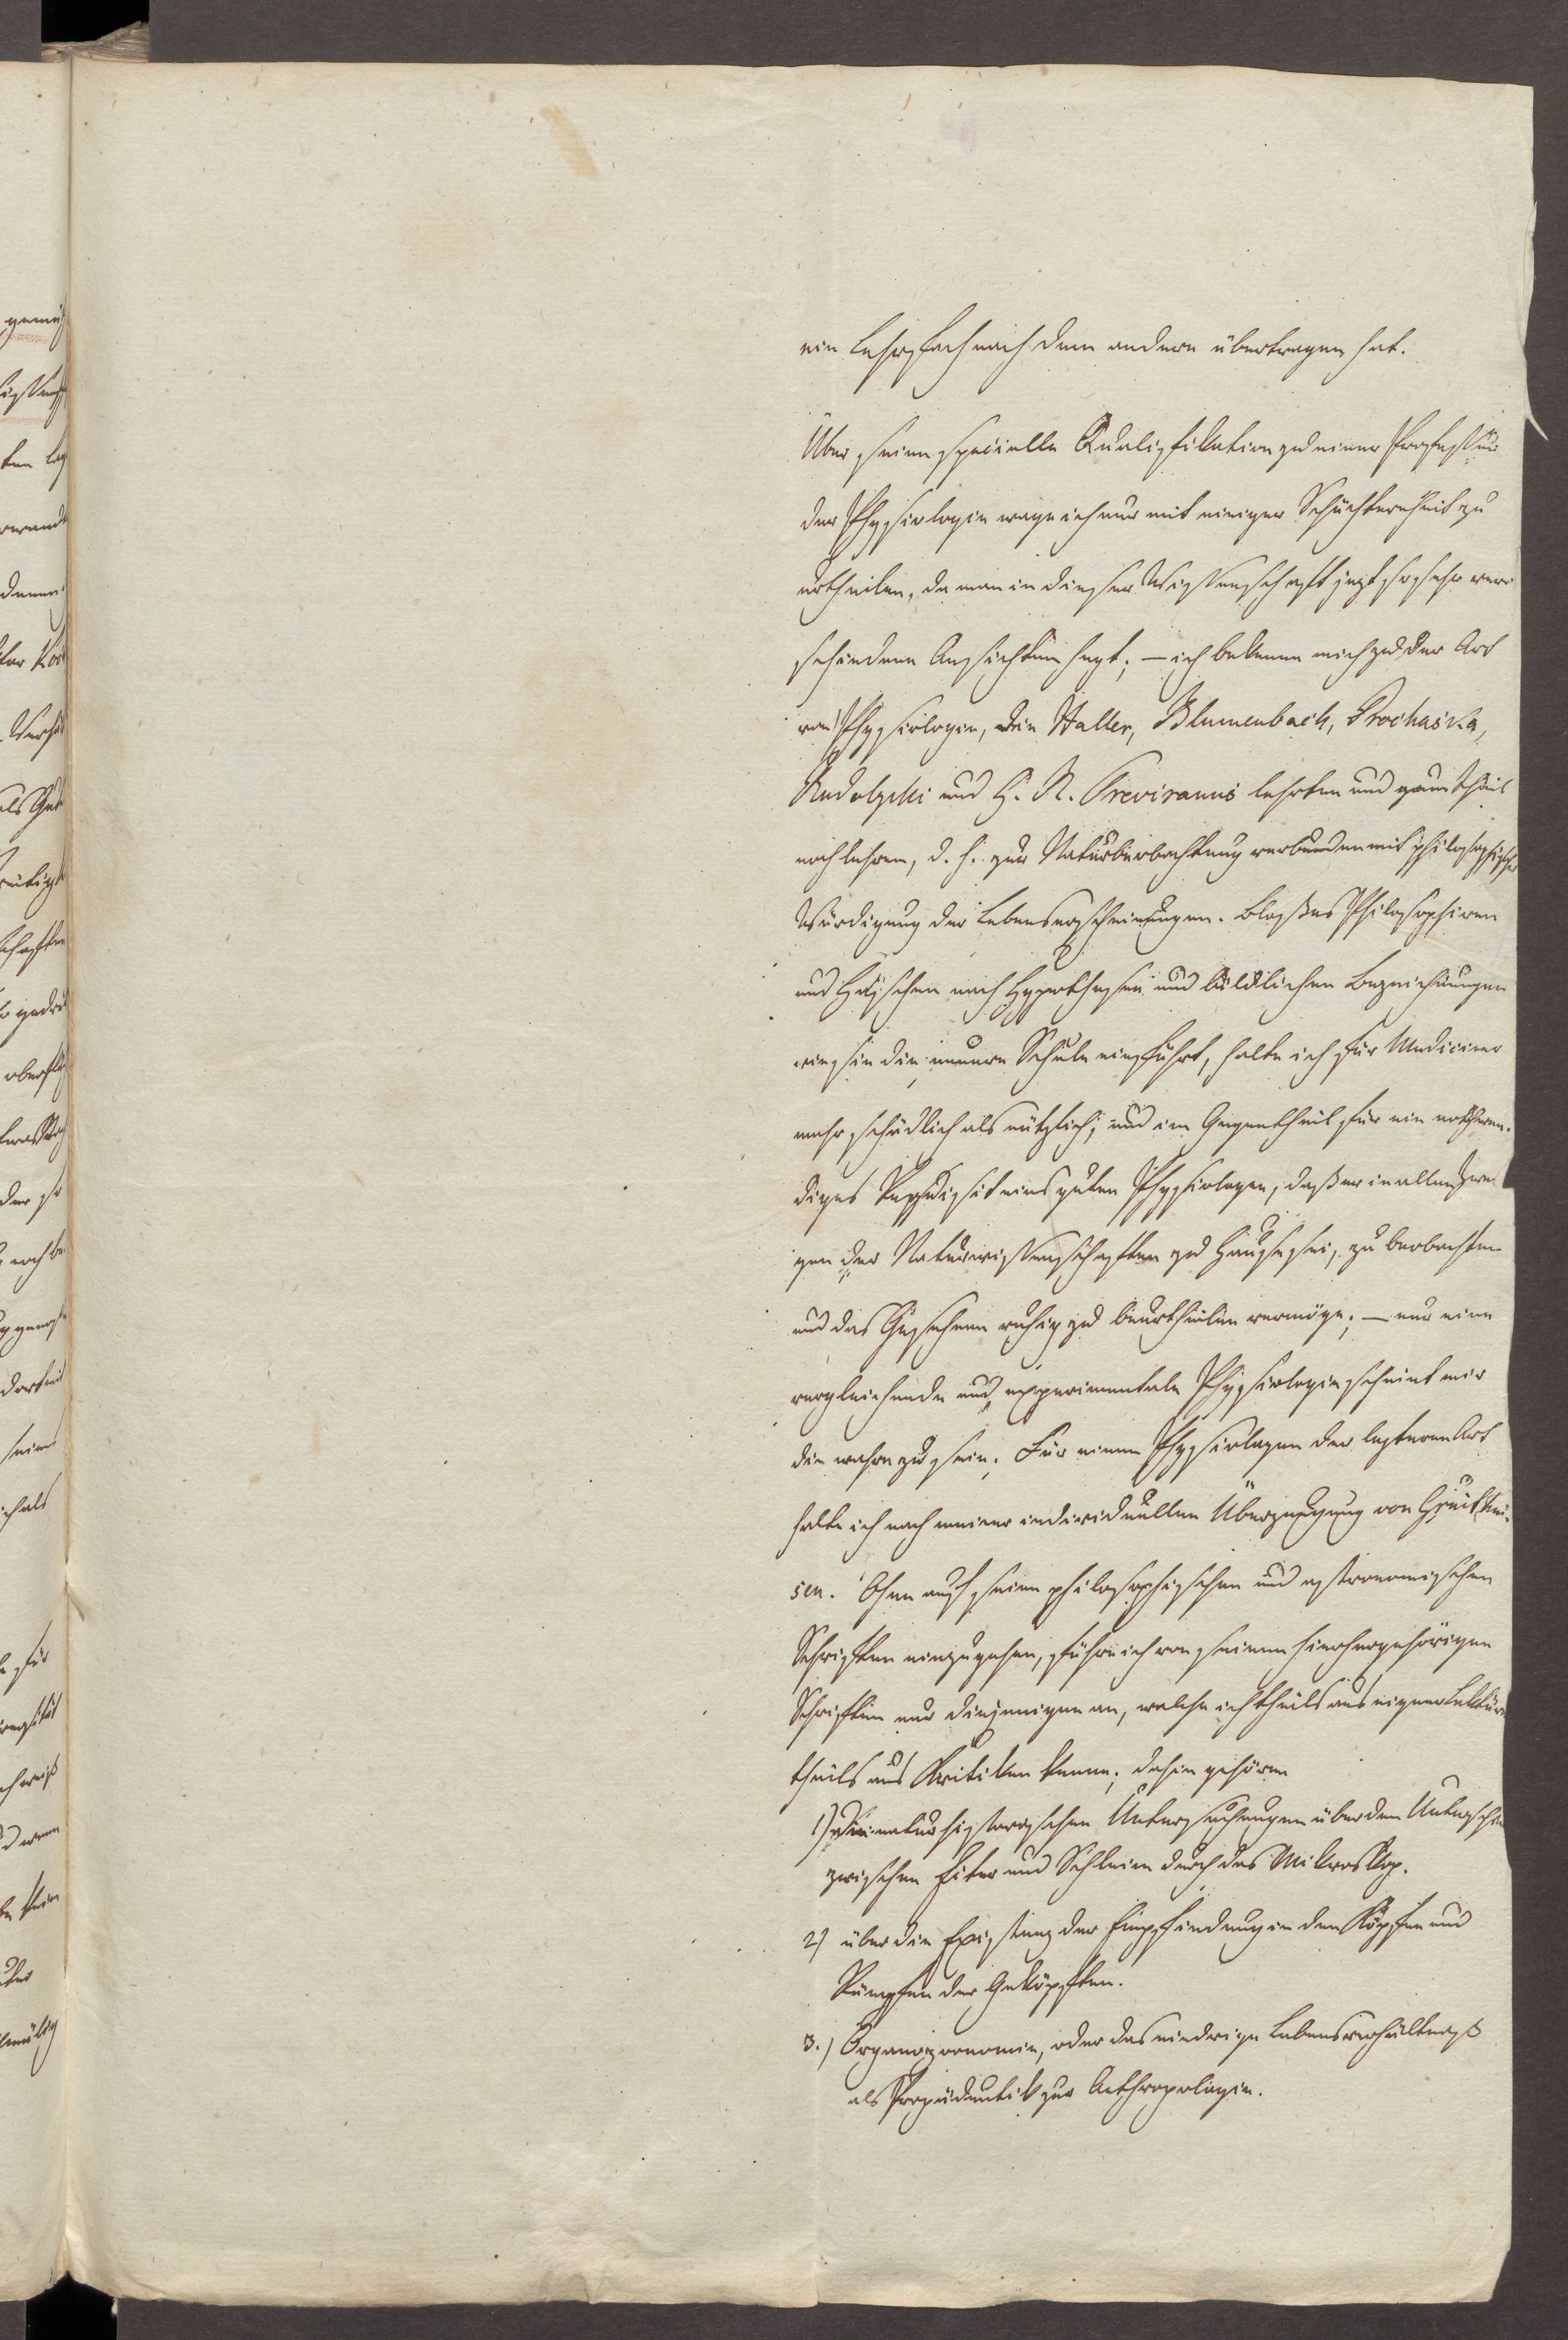 ein Lehrfach nach dem andern übertragen hat.
Über seine specielle Qualifikation zu einer Professur
der Physiologie wage ich nur mit einiger Schüchternheit zu
urtheilen, da man in dieser Wissenschaft jezt so sehr ver
schiedene Ansichten hegt; — ich bekenne mich zu der Art
von Physiologie, die Haller, Blumenbach, Prochaska,
Rudolphi und G. R. Treviranus lehrten und zum Theil
noch lehren, d. h. zur Naturbeobachtung verbunden mit philosophischer
Würdigung der Lebenserscheinungen. Bloßes Philosophiren
und Haschen nach Hypothesen und bildlichen Bezeichnungen
wie sie die neuere Schule einführt, halte ich für Mediciner
mehr schädlich als nützlich; und im Gegentheil für ein nothwen-
diges Requisit eines guten Physiologen, daß er in allen Zwei
gen der Naturwissenschaften zu Hause sei, zu beobachten
und das Gesehene ruhig zu beurtheilen vermöge; — nur eine
vergleichende und experimentale Physiologie scheint mir
die wahre zu sein. Für einen Physiologen der lezteren Art
halte ich nach meiner individuellen Überzeugung von Gruithui-
sen. Ohne auf seine philosophischen und astronomischen
Schriften einzugehen, führe ich von seinen hierhergehörigen
Schriften nur diejenigen an, welche ich theils aus eigner Lektüre
theils aus Kritiken kenne; dahin gehören
1) die naturhistorischen Untersuchungen über den Unterschied
zwischen Eiter und Schleim durch das Mikroskop.
2) über die Existenz der Empfindung in den Köpfen und
Rümpfen der Geköpften.
3.) Organozoonomie, oder das niedrige Lebensverhältniß
als Propädeutik zur Anthropologie.